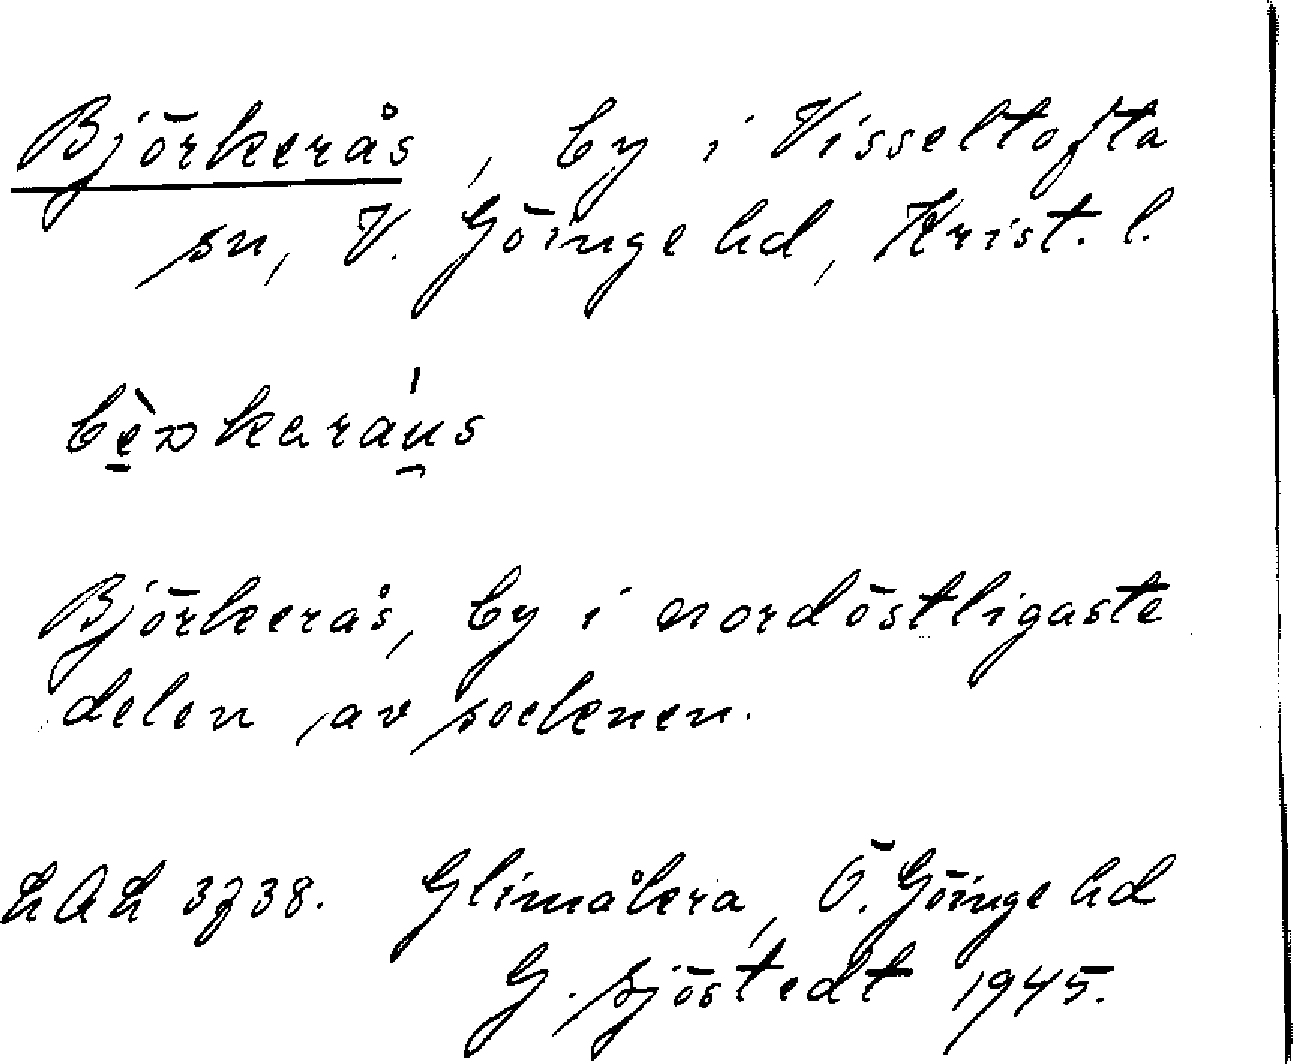 Björkerås, by i Visseltofta
sn, V. Göinge hd, Krist. l.
Björkerås, by i nordöstligaste
delen av socknen.
LAL Glimåkra, Ö. Göinge hd
G. Sjöstedt 1945.